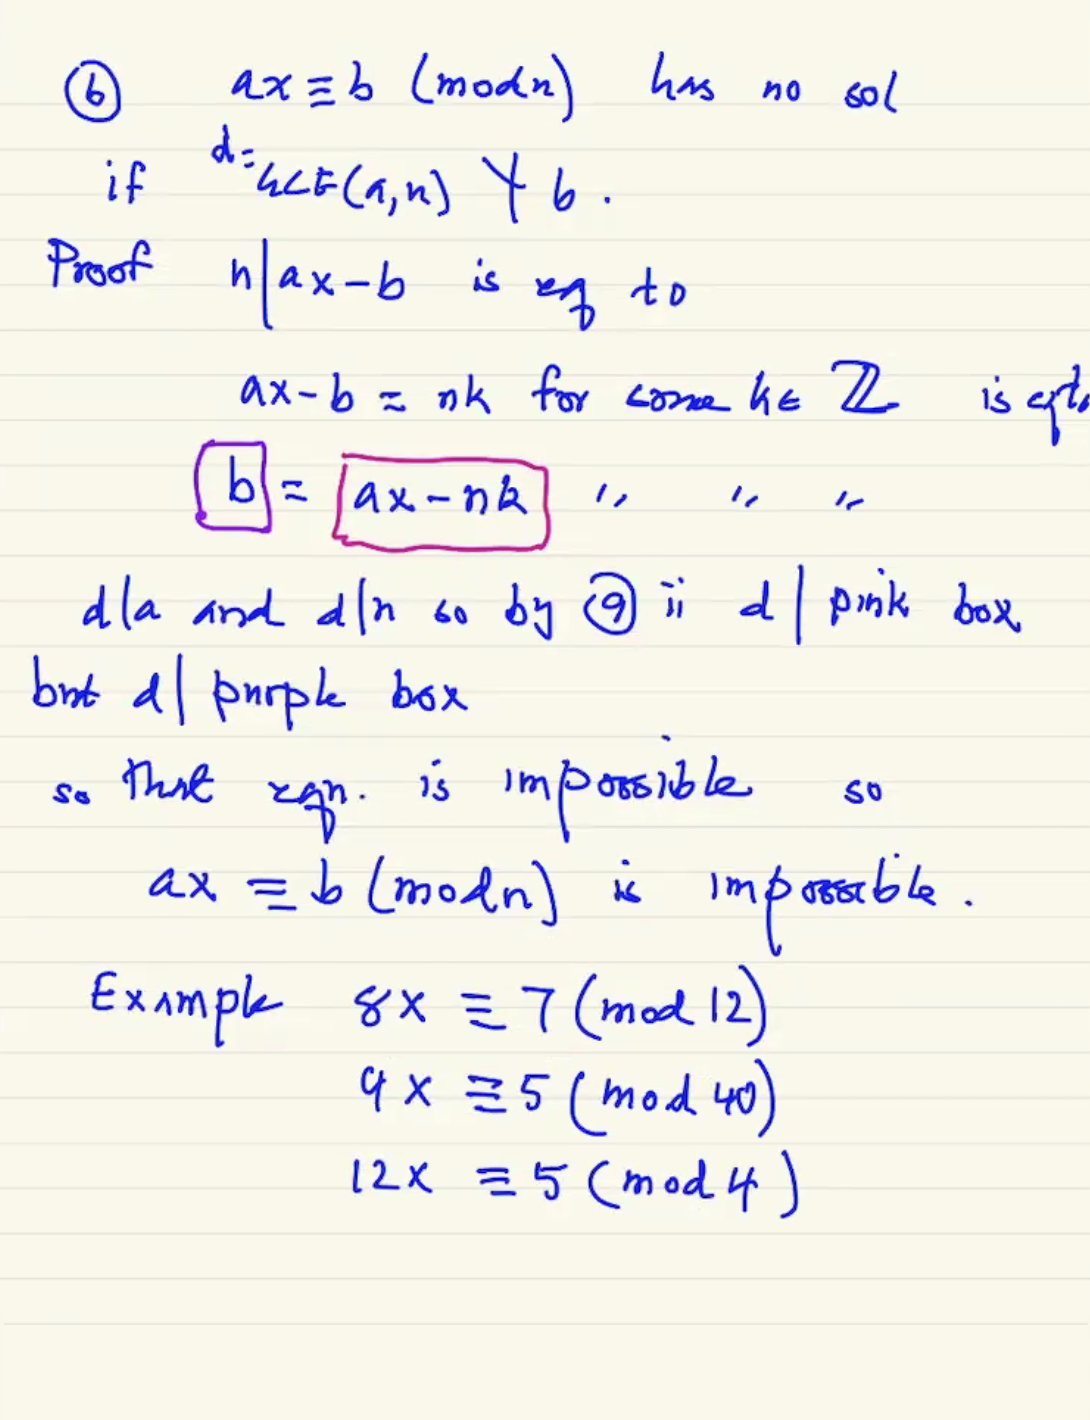 ⓑ ax ≡ b (mod n) has no sol
if d = HCF(a,n) ∤ b.
Proof n | ax-b is eq to
ax-b = nk for some k ∈ ℤ is eq to
b = ax-nk " " "
d|a and d|n so by ⑨ ii d | pink box
but d | purple box
so that eqn. is impossible so
ax ≡ b (mod n) is impossible.
Example 8x ≡ 7 (mod 12)
9x ≡ 5 (mod 40)
12x ≡ 5 (mod 4)